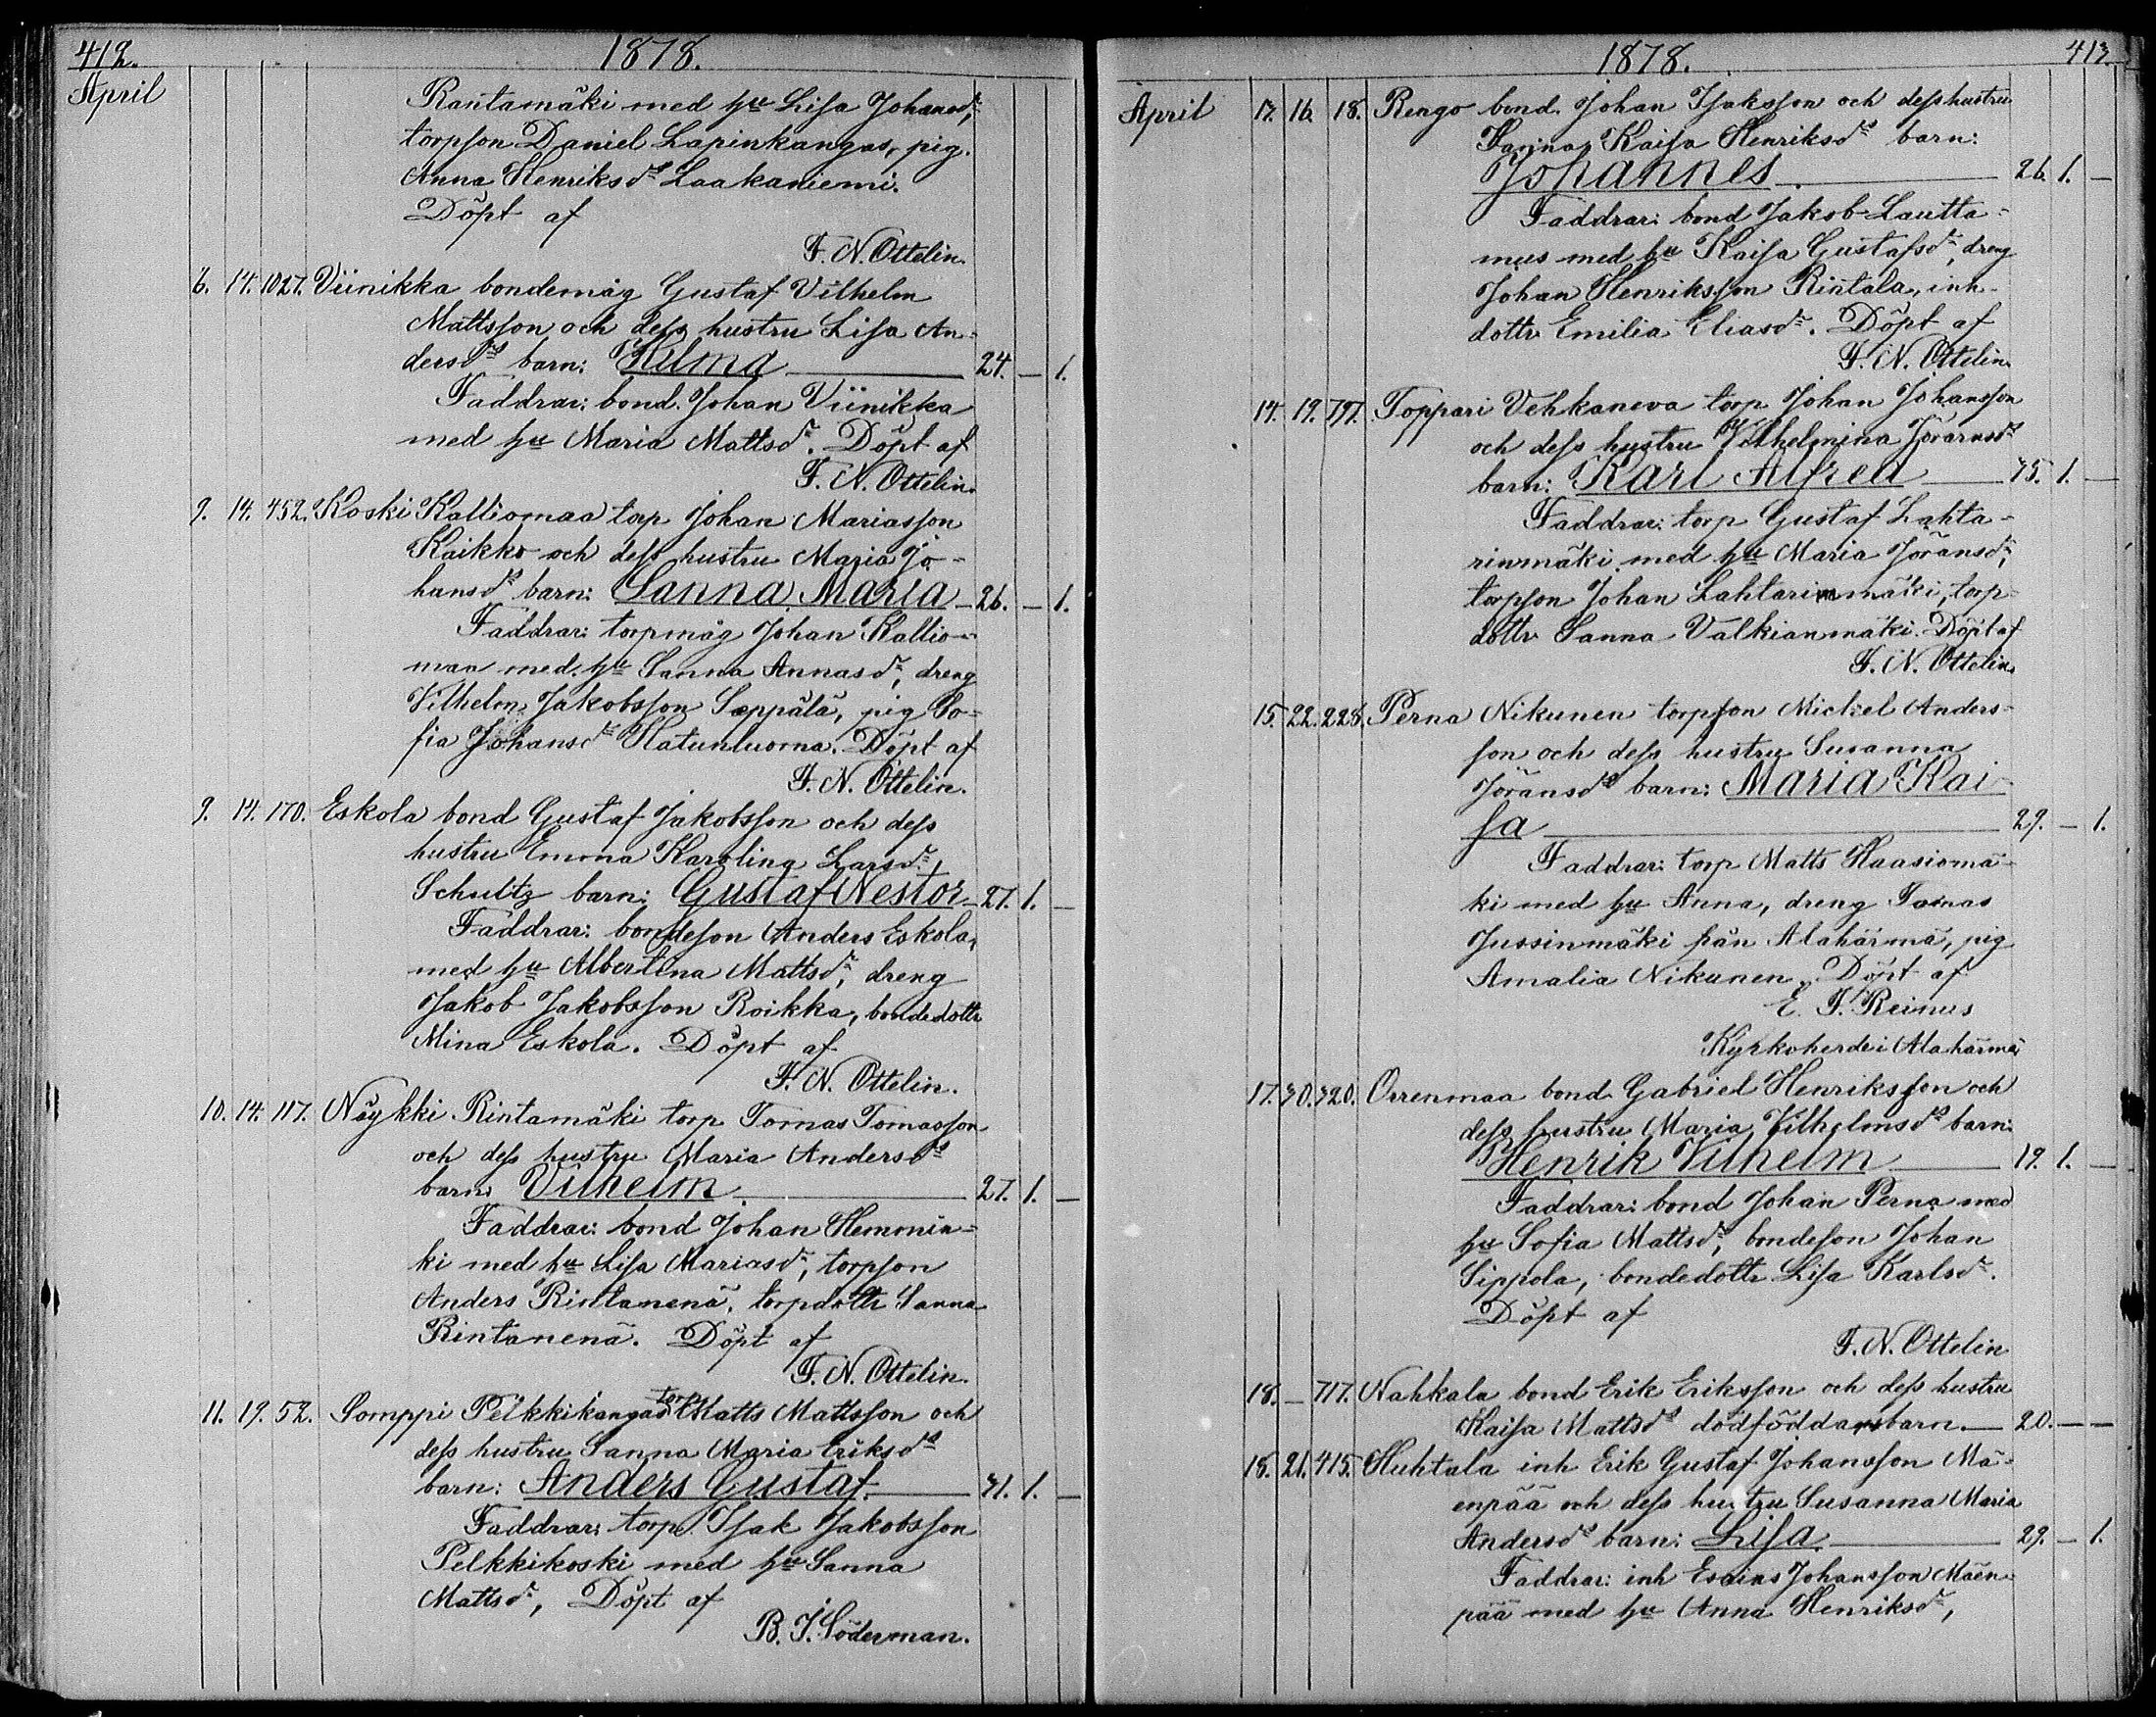 412.
1878.
April
Rantamäki med hu Lisa Johansdr,
torpson Daniel Lapinkangas, pig.
Anna Henriksdr Laakaniemi.
Döpt af
F. N. Ottelin.
6. 14. 1027. Viinikka bondemåg Gustaf Vilhelm
Mattsson och dess hustru Lisa An-
dersds barn: Hilma 24. — 1.
Faddrar: bond. Johan Viinikka
med hu Maria Mattsdr. Döpt af
F. N. Ottelin.
9. 14. 452. Koski Kalliomaa torp Johan Mariasson
Kaikko och dess hustru Maria Jo-
hansds barn: Sanna Maria — 26. — 1.
Faddrar: torpmåg Johan Kallio-
maa med hu Sanna Annasdr, dreng
Vilhelm Jakobsson Seppälä, pig So-
fia Johansdr Hatunluoma. Döpt af
F. N. Ottelin.
9. 14. 170. Eskola bond Gustaf Jakobsson och dess
hustru Emma Karolina Larsdr
Schultz barn: Gustaf Nestor — 27. 1. —
Faddrar: bondeson Anders Eskola,
med hu Albertina Mattsdr, dreng
Jakob Jakobsson Roikka, bondedottr
Mina Eskola. Döpt af
F. N. Ottelin.
10. 14. 117. Näykki Rintamäki torp Tomas Tomasson
och dess hustru Maria Andersds
barn: Vilhelm. — 27. 1. —
Faddrar: bond Johan Hemmin-
ki med hu Lisa Mariasdr, torpson
Anders Rintanenä, torpdottr Sanna
Rintanenä. Döpt af
F. N. Ottelin.
11. 19. 52. Somppi Pelkkikangas torp Matts Mattsson och
dess hustru Sanna Maria Eriksds
barn: Anders Gustaf. — 31. 1. —
Faddrar: torp. Isak Jakobsson
Pelkkikoski med hu Sanna
Mattsdr, Döpt af
B. J. Söderman.
1878.
413.
April 17. 16. 18. Rengo bond. Johan Isaksson och dess hustru
Kaisa Henriksds barn:
Johannes. — 26. 1. —
Faddrar: bond Jakob Lautta-
mus med hu Kaisa Gustafsdr, dreng
Johan Henriksson Rintala, inh
dottr Emilia Eliasdr. Döpt af
F. N. Ottelin.
14. 19. 797. Toppari Vehkaneva torp Johan Johansson
och dess hustru Vilhelmina Jöransds
barn: Karl Alfred — 35. 1. —
Faddrar: torp Gustaf Lahta-
rinmäki med hu Maria Jöransdr,
torpson Johan Lahtarinmäki, torp-
dottr Sanna Valkianmäki. Döpt af
F. N. Ottelin.
15. 22. 228. Perna Nikunen torpson Michel Anders-
son och dess hustru Susanna
Jöransds barn: Maria Kai-
sa — 29. — 1.
Faddrar: torp Matts Haasiomä-
ki med hu Anna, dreng Tomas
Jussinmäki från Alahärmä, pig
Amalia Nikunen. Döpt af
E. F. Reinus
Kyrkoherde i Alahärmä
17. 30. 320. Orrenmaa bond Gabriel Henriksson och
dess hustru Maria Vilhelmsds barn:
Henrik Vilhelm — 19. 1. —
Faddrar: bond Johan Perna med
hu Sofia Mattsdr, bondeson Johan
Sippola, bondedottr Lisa Karlsdr.
Döpt af
F. N. Ottelin
18. — 717. Nahkala bond Erik Eriksson och dess hustru
Kaisa Mattsds dödfödda barn. — 20. — —
18. 21. 415. Huhtala inh Erik Gustaf Johansson Mä-
enpää och dess hustru Susanna Maria
Andersds barn: Lisa. — 29. — 1.
Faddrar: inh Esaias Johansson Mäen-
pää med hu Anna Henriksdr,